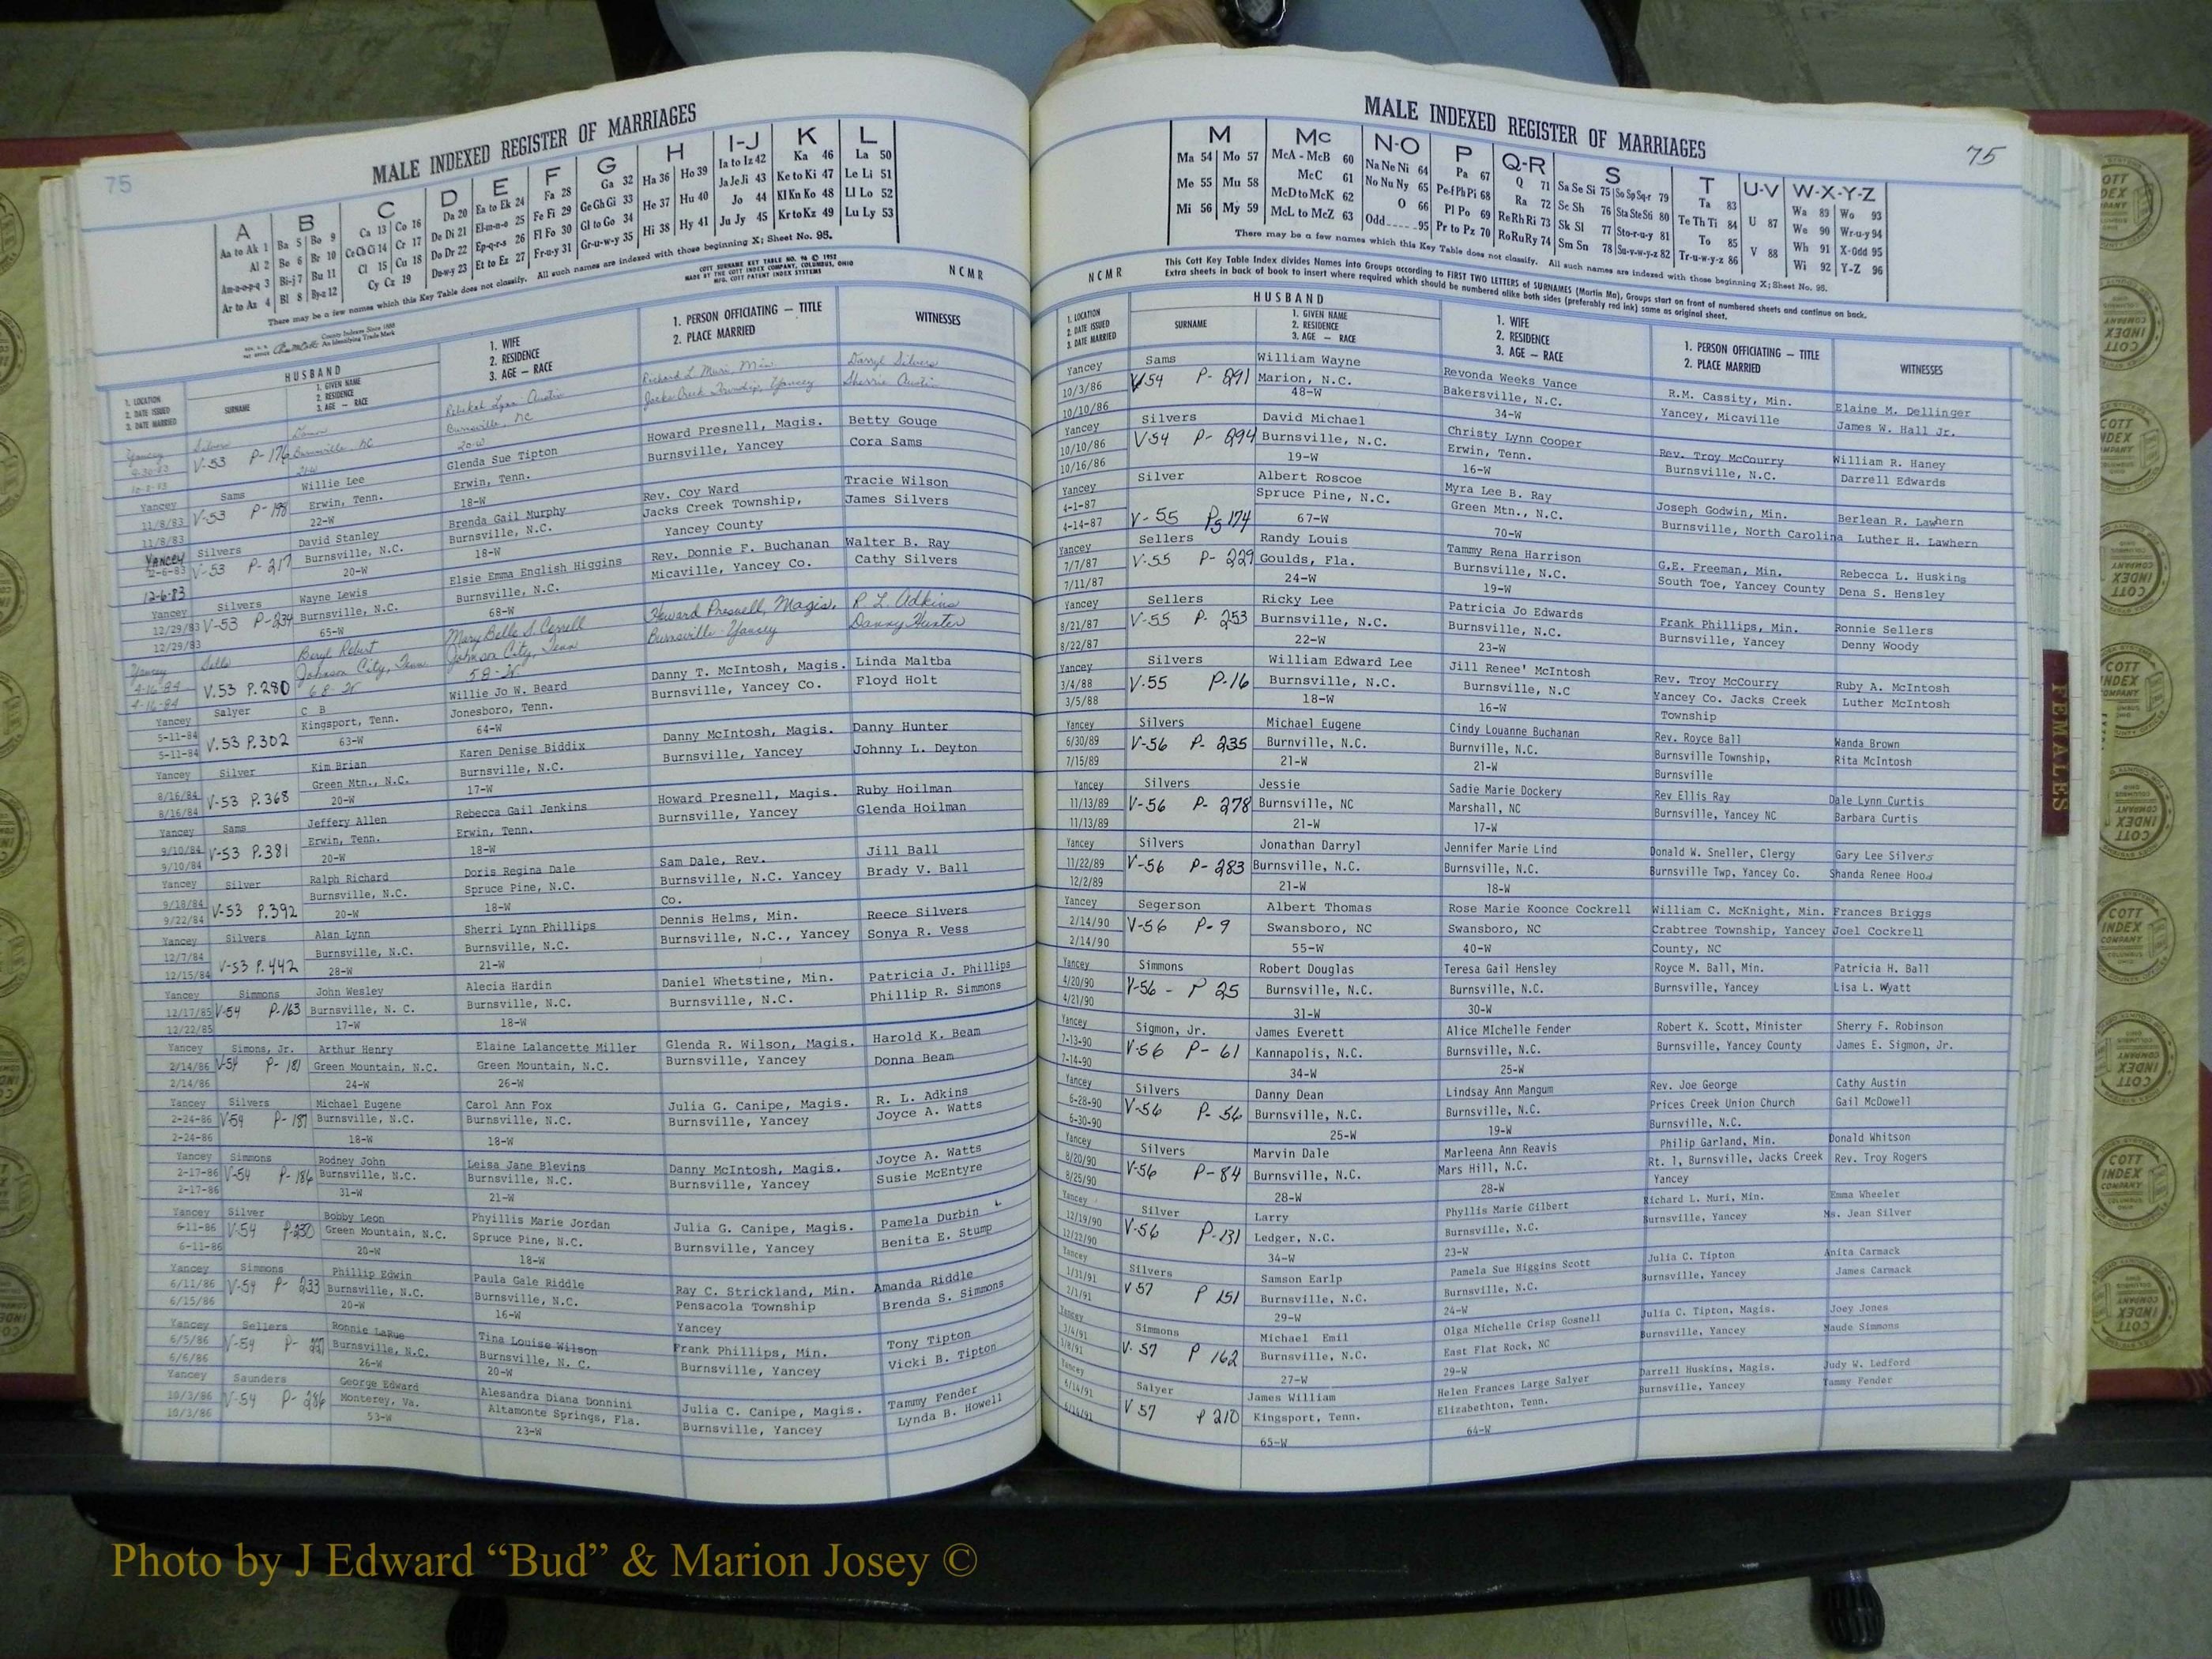 75
MALE INDEXED REGISTER OF MARRIAGES
A B C D E F G H I-J K L
Aa to Ak 1 Ba 5 Bo 9 Ca 13 Co 16 Da 20 Ea to Ek 24 Fa 28 Ga 32 Ha 36 Ho 39 Ia to Iz 42 Ka 46 La 50
Al 2 Be 6 Br 10 Ce Ch Ci 14 Cr 17 De Di 21 El-m-n-o 25 Fe Fi 29 Ge Gh Gi 33 He 37 Hu 40 Ja Je Ji 43 Ke to Ki 47 Le Li 51
Am-n-o-p-q 3 Bi-j 7 Bu 11 Cl 15 Cu 18 Do Dr 22 Ep-q-r-s 26 Fl Fo 30 Gl to Go 34 Hi 38 Hy 41 Jo 44 Kl Kn Ko 48 Ll Lo 52
Ar to Az 4 Bl 8 By-z 12 Cy Cz 19 Du-w-y 23 Et to Ez 27 Fr-u-y 31 Gr-u-w-y 35 Ju Jy 45 Kr to Kz 49 Lu Ly 53
There may be a few names which this Key Table does not classify. All such names are indexed with those beginning X; Sheet No. 95.
COTT SURNAME KEY TABLE NO. 96 © 1952
MADE BY THE COTT INDEX COMPANY, COLUMBUS, OHIO
MFG. COTT PATENT INDEX SYSTEMS
NCMR
County Indexes Since 1888
An Identifying Trade Mark
1. LOCATION
2. DATE ISSUED
3. DATE MARRIED
HUSBAND
SURNAME
1. GIVEN NAME
2. RESIDENCE
3. AGE — RACE
1. WIFE
2. RESIDENCE
3. AGE — RACE
1. PERSON OFFICIATING — TITLE
2. PLACE MARRIED
WITNESSES
Yancey Silvers Rebekah Lynn Austin Richard L. Muri, Min. Darryl Silvers
9-30-83 V-53 P-176 Burnsville NC Burnsville, NC Jacks Creek Township, Yancey Sherrie Austin
10-8-83 20-W
Yancey Sams Willie Lee Glenda Sue Tipton Howard Presnell, Magis. Betty Gouge
11/8/83 V-53 P-198 Erwin, Tenn. Erwin, Tenn. Burnsville, Yancey Cora Sams
11/8/83 22-W 18-W
Yancey Silvers David Stanley Brenda Gail Murphy Rev. Coy Ward Tracie Wilson
12-6-83 V-53 P-217 Burnsville, N.C. Burnsville, N.C. Jacks Creek Township, James Silvers
12-6-83 20-W 18-W Yancey County
Yancey Silvers Wayne Lewis Elsie Emma English Higgins Rev. Donnie F. Buchanan Walter B. Ray
12/29/83 V-53 P-234 Burnsville, N.C. Burnsville, N.C. Micaville, Yancey Co. Cathy Silvers
12/29/83 65-W 68-W
Yancey Sells Beryl Robert Mary Belle S. Correll Howard Presnell, Magis. R. L. Adkins
4-16-84 V.53 P.280 Johnson City, Tenn. Johnson City, Tenn Burnsville-Yancey Danny Hunter
4-16-84 68-W 58-W
Yancey Salyer C B Willie Jo W. Beard Danny T. McIntosh, Magis. Linda Maltba
5-11-84 V.53 P.302 Kingsport, Tenn. Jonesboro, Tenn. Burnsville, Yancey Co. Floyd Holt
5-11-84 63-W 64-W
Yancey Silver Kim Brian Karen Denise Biddix Danny McIntosh, Magis. Danny Hunter
8/16/84 V-53 P.368 Green Mtn., N.C. Burnsville, N.C. Burnsville, Yancey Johnny L. Deyton
8/16/84 20-W 17-W
Yancey Sams Jeffery Allen Rebecca Gail Jenkins Howard Presnell, Magis. Ruby Hoilman
9/10/84 V-53 P.381 Erwin, Tenn. Erwin, Tenn. Burnsville, Yancey Glenda Hoilman
9/10/84 20-W 18-W
Yancey Silver Ralph Richard Doris Regina Dale Sam Dale, Rev. Jill Ball
9/18/84 V-53 P.392 Burnsville, N.C. Spruce Pine, N.C. Burnsville, N.C. Yancey Brady V. Ball
9/22/84 20-W 18-W Co.
Yancey Silvers Alan Lynn Sherri Lynn Phillips Dennis Helms, Min. Reece Silvers
12/7/84 V-53 P.442 Burnsville, N.C. Burnsville, N.C. Burnsville, N.C., Yancey Sonya R. Vess
12/15/84 28-W 21-W
Yancey Simmons John Wesley Alecia Hardin Daniel Whetstine, Min. Patricia J. Phillips
12/17/85 V-54 P-163 Burnsville, N. C. Burnsville, N.C. Burnsville, N.C. Phillip R. Simmons
12/22/85 17-W 18-W
Yancey Simons, Jr. Arthur Henry Elaine Lalancette Miller Glenda R. Wilson, Magis. Harold K. Beam
2/14/86 V-54 P-181 Green Mountain, N.C. Green Mountain, N.C. Burnsville, Yancey Donna Beam
2/14/86 24-W 26-W
Yancey Silvers Michael Eugene Carol Ann Fox Julia G. Canipe, Magis. R. L. Adkins
2-24-86 V-54 P-187 Burnsville, N.C. Burnsville, N.C. Burnsville, Yancey Joyce A. Watts
2-24-86 18-W 18-W
Yancey Simmons Rodney John Leisa Jane Blevins Danny McIntosh, Magis. Joyce A. Watts
2-17-86 V-54 P-186 Burnsville, N.C. Burnsville, N.C. Burnsville, Yancey Susie McEntyre
2-17-86 31-W 21-W
Yancey Silver Bobby Leon Phyillis Marie Jordan Julia G. Canipe, Magis. Pamela Durbin
6-11-86 V-54 P-230 Green Mountain, N.C. Spruce Pine, N.C. Burnsville, Yancey Benita E. Stump
6-11-86 20-W 18-W
Yancey Simmons Phillip Edwin Paula Gale Riddle Ray C. Strickland, Min. Amanda Riddle
6/11/86 V-54 P-233 Burnsville, N.C. Burnsville, N.C. Pensacola Township Brenda S. Simmons
6/15/86 20-W 16-W Yancey
Yancey Sellers Ronnie LaRue Tina Louise Wilson Frank Phillips, Min. Tony Tipton
6/5/86 V-54 P- Burnsville, N.C. Burnsville, N. C. Burnsville, Yancey Vicki B. Tipton
6/6/86 26-W 20-W
Yancey Saunders George Edward Alesandra Diana Donnini Julia C. Canipe, Magis. Tammy Fender
10/3/86 V-54 P-286 Monterey, Va. Altamonte Springs, Fla. Burnsville, Yancey Lynda B. Howell
10/3/86 53-W 23-W
MALE INDEXED REGISTER OF MARRIAGES
75
M Mc N-O P Q-R S T U-V W-X-Y-Z
Ma 54 Mo 57 McA - McB 60 Na Ne Ni 64 Pa 67 Q 71 Sa Se Si 75 So Sp Sq-r 79 Ta 83 U 87 Wa 89 Wo 93
Me 55 Mu 58 McC 61 No Nu Ny 65 Pe-f Ph Pi 68 Ra 72 Sc Sh 76 Sta Ste Sti 80 Te Th Ti 84 V 88 We 90 Wr-u-y 94
Mi 56 My 59 McD to McK 62 O 66 Pl Po 69 Re Rh Ri 73 Sk Sl 77 Sto-r-u-y 81 To 85 Wh 91 X-Odd 95
McL to McZ 63 Odd 95 Pr to Pz 70 Ro Ru Ry 74 Sm Sn 78 Su-v-w-y-z 82 Tr-u-w-y-z 86 Wi 92 Y-Z 96
There may be a few names which this Key Table does not classify. All such names are indexed with those beginning X; Sheet No. 95.
NCMR
This Cott Key Table Index divides Names into Groups according to FIRST TWO LETTERS of SURNAMES (Martin Ma), Groups start on front of numbered sheets and continue on back.
Extra sheets in back of book to insert where required which should be numbered alike both sides (preferably red ink) same as original sheet.
1. LOCATION
2. DATE ISSUED
3. DATE MARRIED
HUSBAND
SURNAME
1. GIVEN NAME
2. RESIDENCE
3. AGE — RACE
1. WIFE
2. RESIDENCE
3. AGE — RACE
1. PERSON OFFICIATING — TITLE
2. PLACE MARRIED
WITNESSES
Yancey Sams William Wayne Revonda Weeks Vance R.M. Cassity, Min. Elaine M. Dellinger
10/3/86 V54 P-291 Marion, N.C. Bakersville, N.C. Yancey, Micaville James W. Hall Jr.
10/10/86 48-W 34-W
Yancey Silvers David Michael Christy Lynn Cooper Rev. Troy McCourry William R. Haney
10/10/86 V54 P-294 Burnsville, N.C. Erwin, Tenn. Burnsville, N.C. Darrell Edwards
10/16/86 19-W 16-W
Yancey Silver Albert Roscoe Myra Lee B. Ray Joseph Godwin, Min. Berlean R. Lawhern
4-1-87 V-55 Pg 174 Spruce Pine, N.C. Green Mtn., N.C. Burnsville, North Carolina Luther H. Lawhern
4-14-87 67-W 70-W
Yancey Sellers Randy Louis Tammy Rena Harrison G.E. Freeman, Min. Rebecca L. Huskins
7/7/87 V-55 P-229 Goulds, Fla. Burnsville, N.C. South Toe, Yancey County Dena S. Hensley
7/11/87 24-W 19-W
Yancey Sellers Ricky Lee Patricia Jo Edwards Frank Phillips, Min. Ronnie Sellers
8/21/87 V-55 P-253 Burnsville, N.C. Burnsville, N.C. Burnsville, Yancey Denny Woody
8/22/87 22-W 23-W
Yancey Silvers William Edward Lee Jill Renee' McIntosh Rev. Troy McCourry Ruby A. McIntosh
3/4/88 V-55 P-16 Burnsville, N.C. Burnsville, N.C Yancey Co. Jacks Creek Luther McIntosh
3/5/88 18-W 16-W Township
Yancey Silvers Michael Eugene Cindy Louanne Buchanan Rev. Royce Ball Wanda Brown
6/30/89 V-56 P-235 Burnville, N.C. Burnville, N.C. Burnsville Township, Rita McIntosh
7/15/89 21-W 21-W Burnsville
Yancey Silvers Jessie Sadie Marie Dockery Rev Ellis Ray Dale Lynn Curtis
11/13/89 V-56 P-278 Burnsville, NC Marshall, NC Burnsville, Yancey NC Barbara Curtis
11/13/89 21-W 17-W
Yancey Silvers Jonathan Darryl Jennifer Marie Lind Donald W. Sneller, Clergy Gary Lee Silvers
11/22/89 V-56 P-283 Burnsville, N.C. Burnsville, N.C. Burnsville Twp, Yancey Co. Shanda Renee Hood
12/2/89 21-W 18-W
Yancey Segerson Albert Thomas Rose Marie Koonce Cockrell William C. McKnight, Min. Frances Briggs
2/14/90 V-56 P-9 Swansboro, NC Swansboro, NC Crabtree Township, Yancey Joel Cockrell
2/14/90 55-W 40-W County, NC
Yancey Simmons Robert Douglas Teresa Gail Hensley Royce M. Ball, Min. Patricia H. Ball
4/20/90 V-56 - P 25 Burnsville, N.C. Burnsville, N.C. Burnsville, Yancey Lisa L. Wyatt
4/21/90 31-W 30-W
Yancey Sigmon, Jr. James Everett Alice MIchelle Fender Robert K. Scott, Minister Sherry F. Robinson
7-13-90 V-56 P-61 Kannapolis, N.C. Burnsville, N.C. Burnsville, Yancey County James E. Sigmon, Jr.
7-14-90 34-W 25-W
Yancey Silvers Danny Dean Lindsay Ann Mangum Rev. Joe George Cathy Austin
6-28-90 V-56 P-56 Burnsville, N.C. Burnsville, N.C. Prices Creek Union Church Gail McDowell
6-30-90 25-W 19-W Burnsville, N.C.
Yancey Silvers Marvin Dale Marleena Ann Reavis Philip Garland, Min. Donald Whitson
8/20/90 V-56 P-84 Burnsville, N.C. Mars Hill, N.C. Rt. 1, Burnsville, Jacks Creek Rev. Troy Rogers
8/25/90 28-W 28-W Yancey
Yancey Silver Larry Phyllis Marie Gilbert Richard L. Muri, Min. Emma Wheeler
12/19/90 V-56 P-131 Ledger, N.C. Burnsville, N.C. Burnsville, Yancey Ms. Jean Silver
12/22/90 34-W 23-W
Yancey Silvers Samson Earlp Pamela Sue Higgins Scott Julia C. Tipton Anita Carmack
1/31/91 V 57 P 151 Burnsville, N.C. Burnsville, N.C. Burnsville, Yancey James Carmack
2/1/91 29-W 24-W
Yancey Simmons Michael Emil Olga Michelle Crisp Gosnell Julia C. Tipton, Magis. Joey Jones
3/4/91 V. 57 P 162 Burnsville, N.C. East Flat Rock, NC Burnsville, Yancey Maude Simmons
3/8/91 27-W 29-W
Yancey Salyer James William Helen Frances Large Salyer Darrell Huskins, Magis. Judy W. Ledford
6/14/91 V 57 P 210 Kingsport, Tenn. Elizabethton, Tenn. Burnsville, Yancey Tammy Fender
65-W 64-W
FEMALES
COTT INDEX COMPANY
Photo by J Edward “Bud” & Marion Josey ©